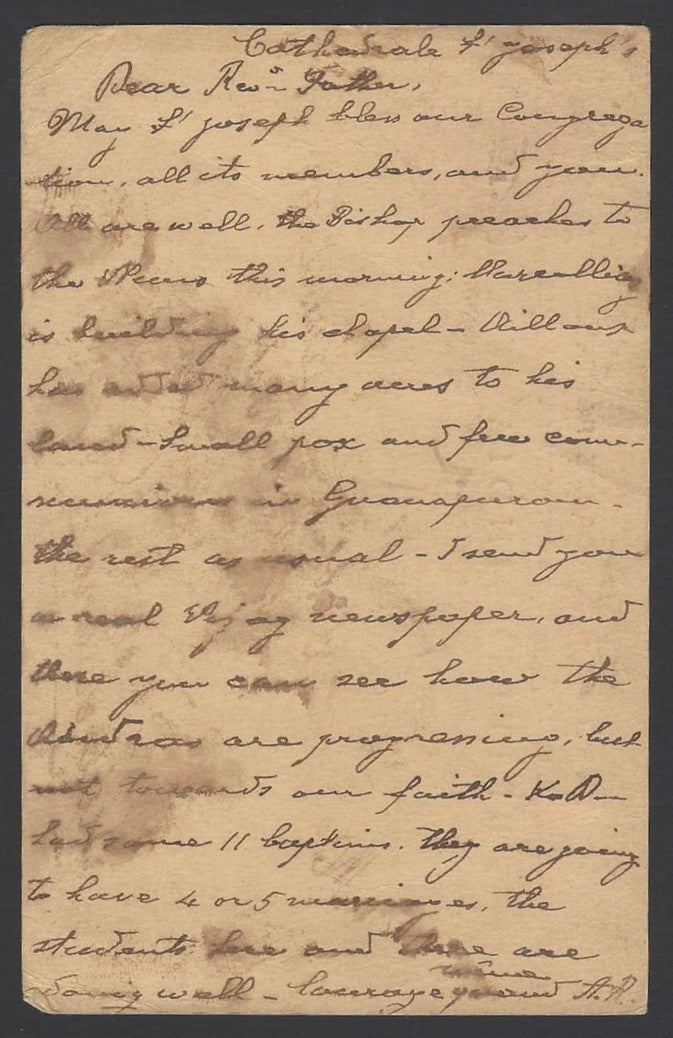 Cathedrale St Joseph's
Dear Revd Father,
May St Joseph bless our Congrega
tion, all its members, and you.
All are well, the Bishop preaches to
the this morning;
is building his chapel -
has added many acres to his
land - Small pox and few com-
in
the rest as usual - I send you
a real newspaper, and
there you can see how the
are progressing, but
not towards our faith -
had some 11 baptisms. They are going
to have 4 or 5 marriages, the
students here and there are
doing well - Courage quand même A.R.